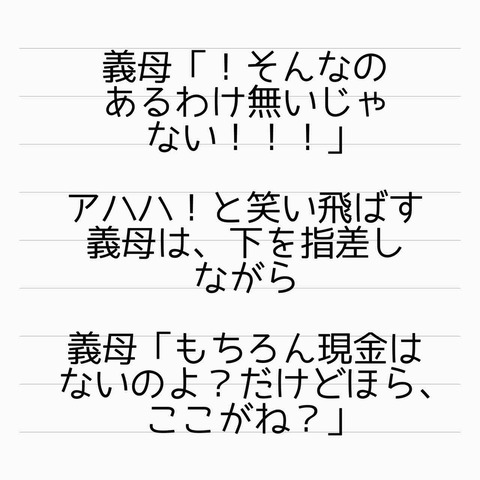 義母「！そんなの
あるわけ無いじゃ
ない！！！」
アハハ！と笑い飛ばす
義母は、下を指差し
ながら
義母「もちろん現金は
ないのよ？だけどほら、
ここがね？」